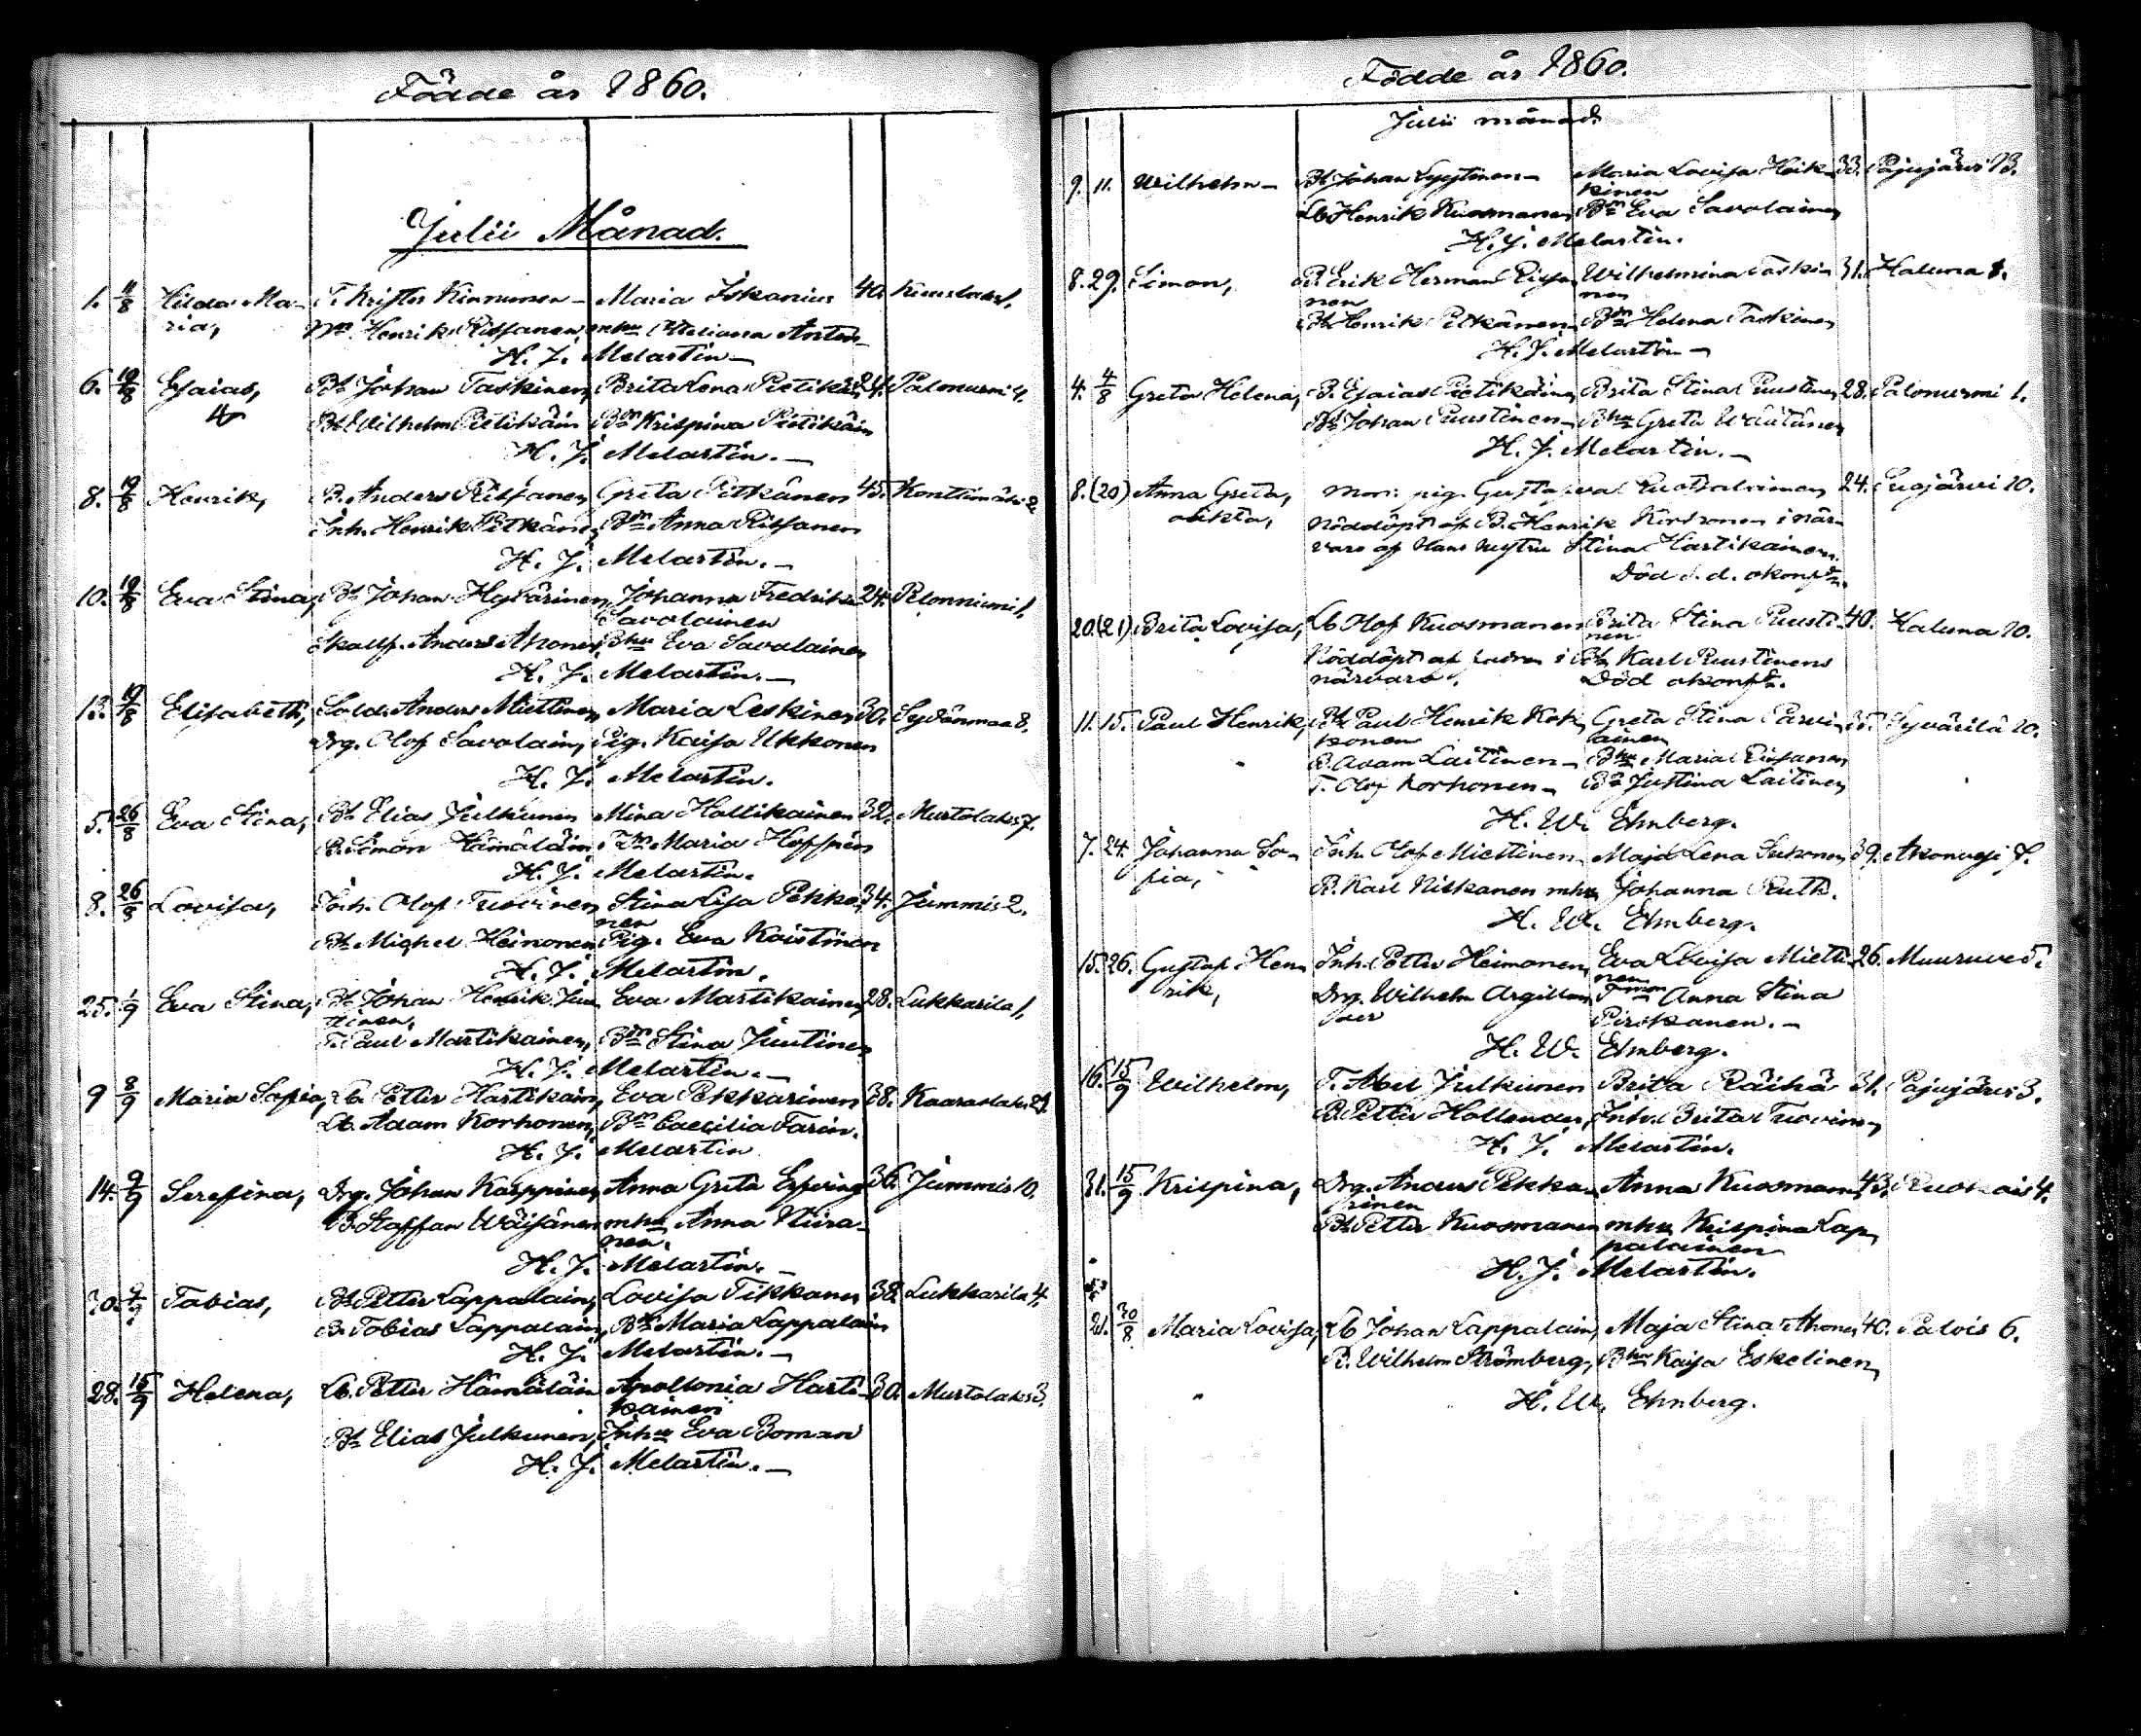 Födde år 1860.
Julii Månad.
1. 11/8 Hilda Ma- T. Krister Kinnunen - Maria Iskanius 40. Kuuslaks 1.
ria, Henrik Ritsanen, mhu Anton
H. J. Melartin -
6. 19/8 Esaias, Bs Johan Taskinen, Brita Lena Pietikäin 24. Palonurmi 4.
Bs Wilhelm Pietikäin Bdr Krispina Pietikäin
H. J. Melartin. -
8. 19/8 Henrik, B. Anders Ritsanen, Greta Pitkänen 45. Konttimäki 2
Inh. Henrik Pitkänen, Bdr Anna Ritsanen
H. J. Melartin. -
10. 19/8 Eva Stina, Bs Johan Hyvärinen, Johanna Fredrika 24. Pelonniemi 1.
Savolainen
Skallf. Anders Ahonen, Bhu Eva Savolainen
H. J. Melartin. -
13. 19/8 Elisabeth, Sold. Anders Miettinen, Maria Leskinen 30. Sydänmaa 8.
Drg. Olof Savolain, Pig. Kaisa Ukkonen
H. J. Melartin.
5. 26/8 Eva Stina, Bs Elias Julkunen Mina Hallikainen 32. Murtolaks 7.
B. Simon Hämäläin, Maria Hoffrén
H. J. Melartin.
8. 26/8 Lovisa, Inh. Olof Tuovinen, Stina Lisa Pekka- 34. Jummis 2.
nen
Bs Michel Heinonen, Pig. Eva Kaistinen
H. J. Melartin.
25. 1/9 Eva Stina, Bs Johan Henrik Jun Eva Martikainen, 28. Lukkarila 1.
tinen,
T. Paul Martikainen, Bdr Stina Juutinen
H. J. Melartin. -
9 8/9 Maria Sofia, Lb Petter Hartikain, Eva Pekkarinen 38. Kaaraslaks 29.
Lb. Adam Korhonen, Bdr Caecilia Farin.
H. J. Melartin
14. 9/9 Serefina, Drg. Johan Karppinen, Anna Greta Erfving 36. Jummis 10.
B. Staffan Wäisänen mhu Anna Niira-
nen.
H. J. Melartin. -
30. 9/9 Tobias, Bs Petter Lappalain, Lovisa Tikkanen 38. Lukkarila 4.
B. Tobias Lappalain, Bdr Maria Lappalain
H. J. Melartin. -
28. 15/9 Helena, Lb. Petter Hämäläin Apollonia Harti- 30. Murtolaks 3.
kainen
Bs Elias Julkunen, Inhu Eva Boman
H. J. Melartin. -
Födde år 1860.
Julii månad.
9. 11. Wilhelm - Bs Johan Lyytinen - Maria Lovisa Heik- 33. Pajujärvi 13.
kinen
Lb Henrik Kuosmanen, Bdr Eva Savolainen
H. J. Melartin.
8. 29. Simon, B. Erik Herman Wilhelmina Taskin 31. Haluna 8.
nen nen
Bs Henrik Pitkänen, Bdr Helena Taskinen
H. J. Melartin -
4. 4/8 Greta Helena, B. Esaias Pietikäinen, Brita Stina Puustinen 28. Palonurmi 1.
Bs Johan Puustinen - Bhu Greta Wäätänen
H. J. Melartin. -
8. (20) Anna Greta, Mor: pig. Gustava Ruotsalainen 24. Luojärvi 10.
oäkta, Nöddöpt af B. Henrik Korhonen i när-
varo af Hans hustru Stina Hartikainen.
Död s. d. okonf.
20. (21) Brita Lovisa, Lb Olof Kuosmanen Brita Stina Puusti- 40. Haluna 10.
nen
Nöddöpt af fadren i Bs Karl Puustinens
närvaro. Död okonf.
11. 15. Paul Henrik, Bs Paul Henrik Kok- Greta Stina Parvi- 35. Syvärilä 20.
konen ainen
B. Adam Laitinen - Bhu Maria
T. Olof Korhonen - Bdr Justina Laitinen
H. W. Ehnberg.
7. 24. Johanna So- Inh. Olof Miettinen Maja Lena Suhonen 39. Akonvesi 7.
fia, B. Karl Niskanen mhu Johanna Ruth.
H. W. Ehnberg.
15. 26. Gustaf Hen Inh. Petter Heimonen, Eva Lovisa Mietti- 26. Muuruves 5.
rik, nen
Drg. Wilhelm Argillan Anna Stina
der Pirskanen. -
H. W. Ehnberg.
16. 15/9 Wilhelm, T. Abel Julkunen Brita Räihä 31. Pajujärvi 3.
B. Petter Hollender, Inh. Brita Tuovinen
H. J. Melartin.
31. 15/9 Krispina, Drg. Anders Pekka- Anna Kuosmanen, 43. 4.
rinen
Bs Petter Kuosmanen mhu Krispina Lap-
palainen
H. J. Melartin.
21. 30/8 Maria Lovisa, Lb Johan Lappalain, Maja Stina Ahonen 40. Palois 6.
B. Wilhelm Strömberg, Bhu Kaisa Eskelinen
H. W. Ehnberg.